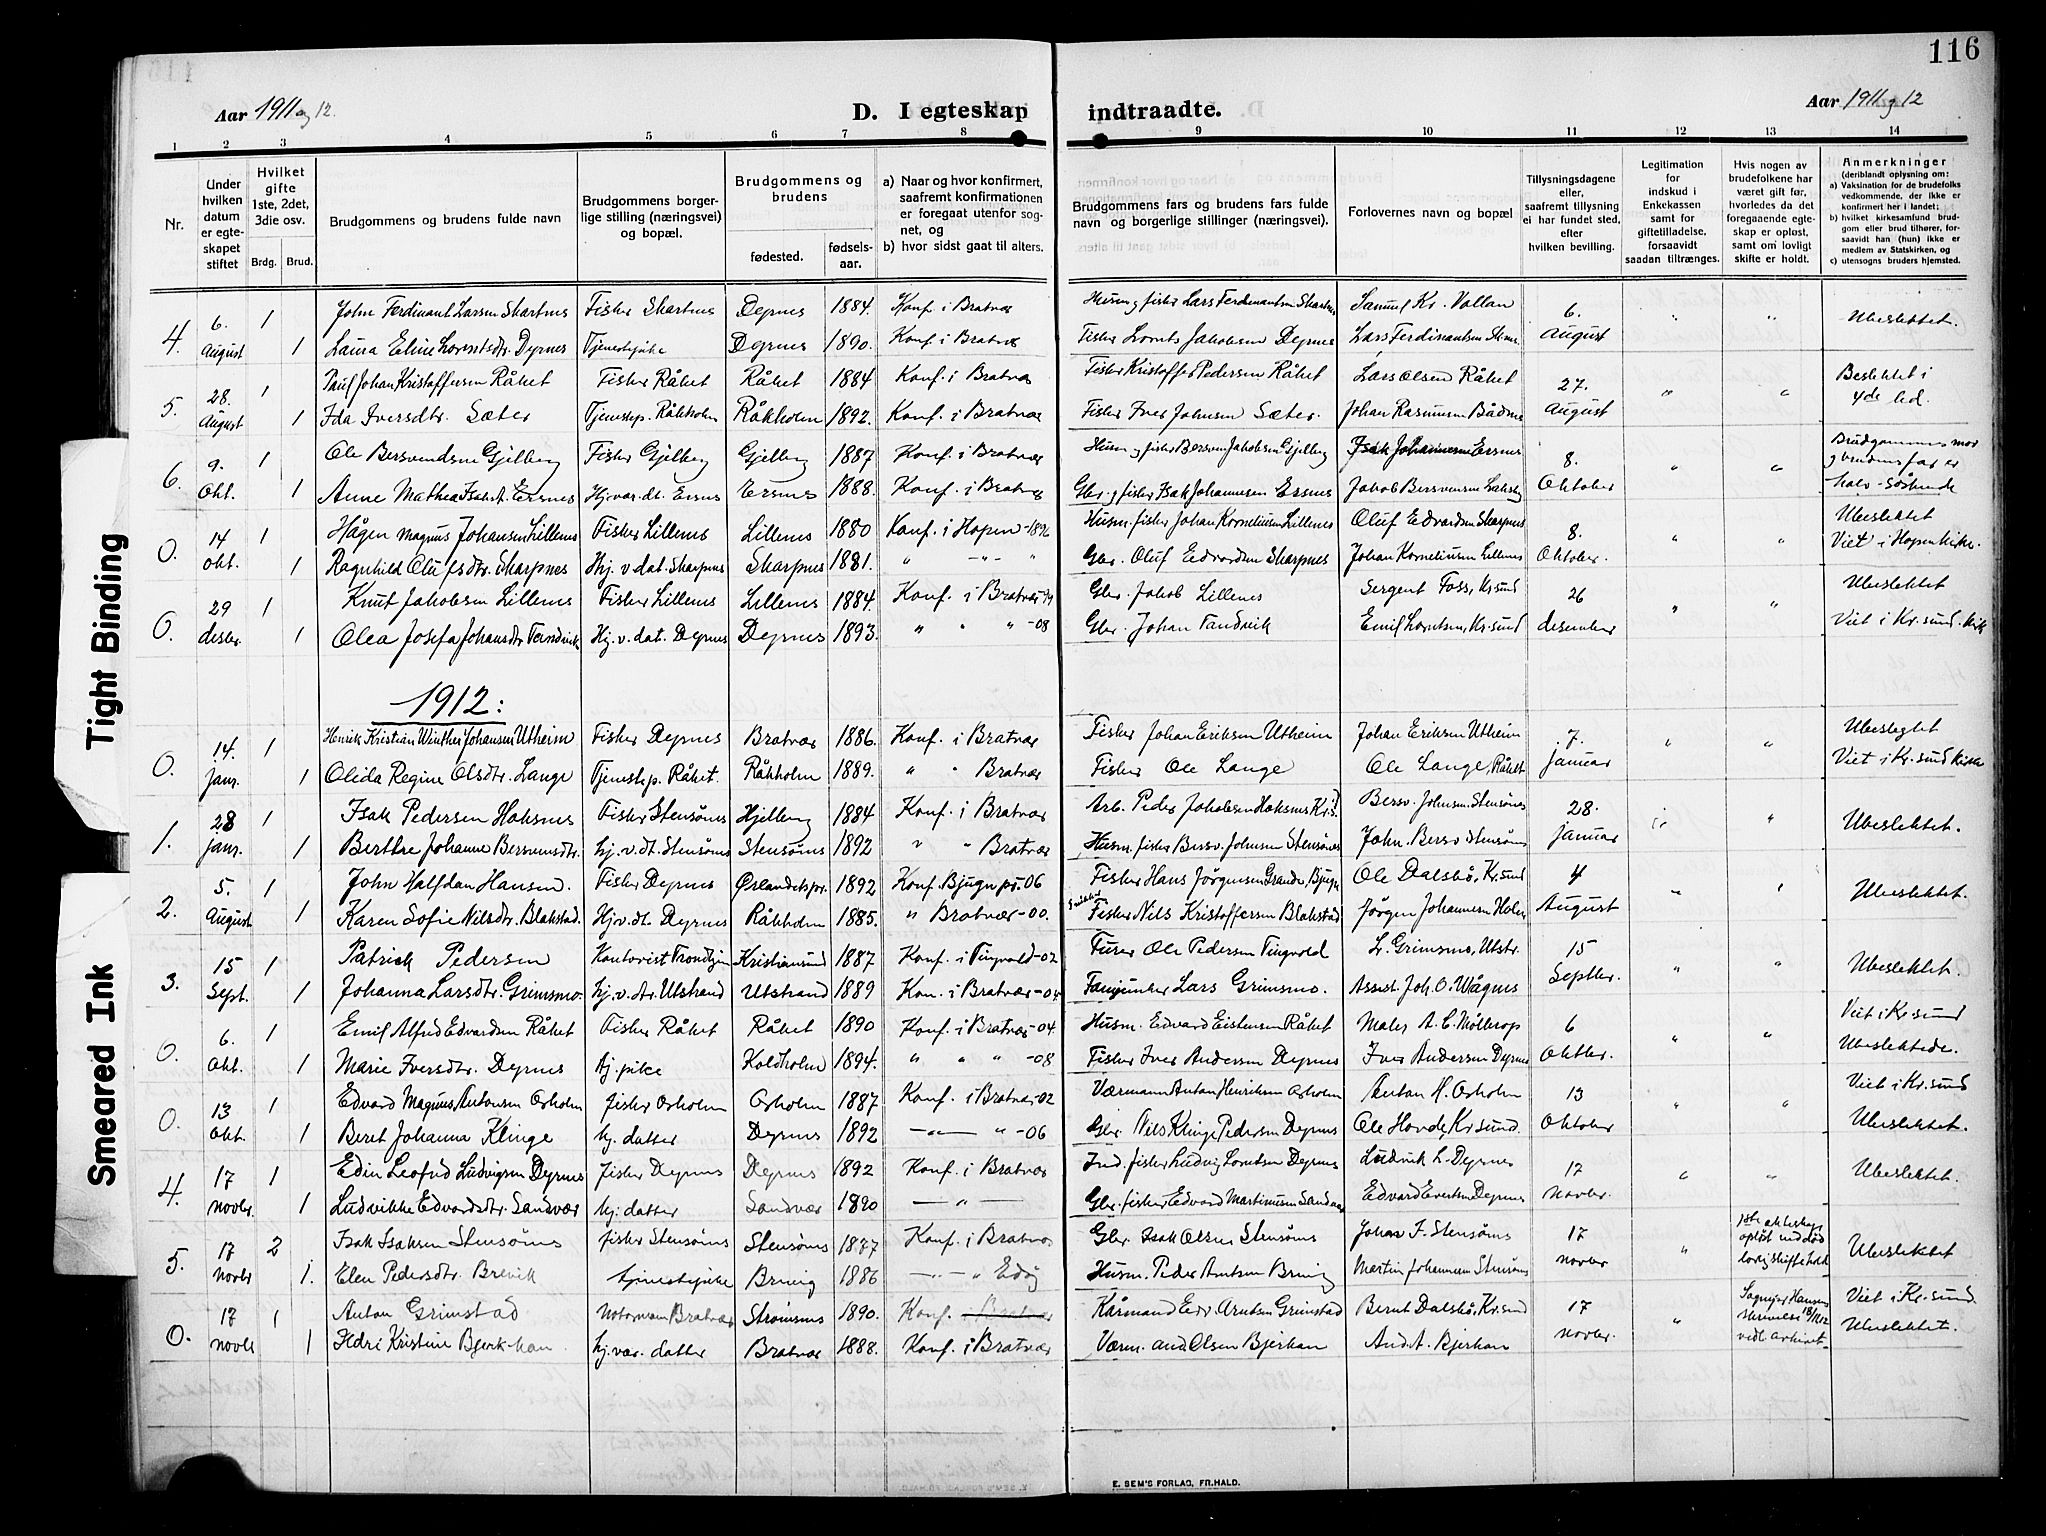 116
Aar 1911 og 12.
D. I egteskap indtraadte.
Aar 1911 og 12
1 2 3 4 5 6 7 8 9 10 11 12 13 14
Nr.
Under hvilken datum er egteskapet stiftet
Hvilket gifte 1ste, 2det, 3die osv.
Brdg. Brud.
Brudgommens og brudens fulde navn
Brudgommens borgerlige stilling (næringsvei) og bopæl.
Brudgommens og brudens
fødested.
fødselsaar.
a) Naar og hvor konfirmert, saafremt konfirmationen er foregaat utenfor sognet, og
b) hvor sidst gaat til alters.
Brudgommens fars og brudens fars fulde navn og borgerlige stillinger (næringsvei).
Forlovernes navn og bopæl
Tillysningsdagene eller, saafremt tillysning ei har fundet sted, efter hvilken bevilling.
Legitimation for indskud i Enkekassen samt for giftetilladelse, forsaavidt saadan tiltrænges.
Hvis nogen av brudefolkene har været gift før, hvorledes da det foregaaende egteskap er opløst, samt om lovligt skifte er holdt.
Anmerkninger (deriblandt oplysning om:
a) Vaksination for de brudefolks vedkommende, der ikke er konfirmert her i landet;
b) hvilket kirkesamfund brudgom eller brud tilhører, forsaavidt han (hun) ikke er medlem av Statskirken, og
c) utensogns bruders hjemsted.
4. 6. August 1 John Ferdinant Larsen Skartnes Fisker Skartnes Dyrnes 1884. Konf. i Bratvær Husm. og fisker Lars Ferdinantsen Skartnes Samuel Kr. Vollan 6. August " " Ubeslektet.
1 Laura Eline Lorentsdtr. Dyrnes Tjenestepike Dyrnes 1890. Konf. i Bratvær Fisker Lornts Jakobsen Dyrnes Lars Ferdinantsen
5. 28. August 1 Paul Johan Kristoffersen Råket Fisker Råket Råket 1884 Konf. i Bratvær Fisker Kristoffer Pedersen Råket Lars Olsen Råket 27. August " " Beslektet i 4de led.
1 Ida Iversdtr. Sæter Tjenestep. Råkholm Råkholm 1892. Konf. i Bratvær Fisker Iver Johnsen Sæter. Johan Rasmussen
6. 9. Okt. 1 Ole Bersvendsen Gjelberg Fisker Gjelberg Gjelberg 1887 Konf. i Bratvær Husm. og fisker Bersven Jakobsen Gjelberg Isak Johannesen Ersnes 8. Oktober " " Brudgommens mor og brudens far er halv-søskende
1 Anne Mathea Isaksdt. Ersnes Hj.vær. dt. Ersnes Ersnes 1888. Konf. i Bratvær Gbr. og fisker Isak Johannesen Ersnes Jakob Bersvensen
0. 14 Okt. 1 Hågen Magnus Johansen Lillenes Fisker Lillenes Lillenes 1880 Konf. i Hopen-1896 Husm. fisker Johan Korneliussen Lillenes Oluf Edvardsen Skarpnes 8. Oktober. " " Ubeslektet
1 Ragnhild Olufsdtr. Skarpnes Hj. v dat. Skarpnes Skarpnes 1881. " -"- " Gbr. Oluf Edvardsen Skarpnes Johan Korneliusen Lillenes Viet i Hopen kirke.
0. 29 desbr. 1 Knut Jakobsen Lillenes Fisker Lillenes Lillenes 1884. Konf. i Bratvær Gbr. Jakob Lillenes Sergent Foss, Kr.sund 26 desember " " Ubeslektet
1 Olea Josefa Johansdtr Tandvik Hj. v. dat. Dyrnes Dyrnes 1893. " " " -08 Gbr. Johan Tandvik Emil Lorntsen, Kr.sund Viet i Kr.sund. kirk
1912:
0. 14. Janr. 1 Henrik Kristian Winther Johansen Utheim Fisker Dyrnes Bratvær 1886. Konf. i Bratvær Fisker Johan Eriksen Utheim Johan Eriksen Utheim 7. Januar " " Ubeslegtet
1 Olida Regine Olsdtr. Lange Tjenestep. Råket. Råkholm 1889. " " Bratvær Fisker Ole Lange Ole Lange, Råket Viet i Kr.sund kirke
1. 28 Janr. 1 Isak Pedersen Haksnes Fisker Stensønes Hjelberg 1884 Konf. i Bratvær Arb. Peder Jakobsen Haksnes Bersv. Johnsen Stensønes 28. Januar " Ubeslektet.
1 Berthe Johanne Bersvensdtr. hj. v. dt. Stensønes Stensønes 1892 " " Bratvær Husm. fisker Bersv. Johnsen Stensønes John. Bersv Stensønes
2. 5. August 1 John Halfdan Hansen. Fisker Dyrnes Ørlandetspr. 1892 Konf. Bjugn pr.-06 Fisker Hans Jörgensen Grande, Bjugn Ole Dalsbø, Kr.sund 4 August " Ubeslektet.
1 Karen Sofie Nilsdtr. Blakstad. Hj.v.dt. Dyrnes Råkholm 1885. " Bratvær-00. Fisker Nils Kristoffersen Blakstad Jörgen Johannesen
3. 15 Sept. 1 Patrick Pedersen Kontorist Trondhjem Kristiansund 1887 Konf. i Tingvold-02 Furer Ole Pedersen Tingvold L. Grimsmo, Utstr. 15 Septbr. " " Ubeslektet.
1 Johanna Larsdtr. Grimsmo. hj. v. dtr. Utstrand Utstrand 1889 Kon. i Bratvær-04 Lars Grimsmo. Assist. Joh. O. Wågnes
0. 6. Okt. 1 Emil Alfred Edvardsen Råket Fisker Råket Råket 1890 Konf. i Bratvær-04. Husm. Edvard Eistensen Råket Maler A. C. Møllerop 6 Oktbr. " " Viet i Kr.sund
1 Marie Iversdtr. Dyrnes hj. pike Koldholm 1894. " " " -08 Fisker Iver Andersen Dyrnes Iver Andersen Dyrnes Ubeslektede.
0. 13 Okt. 1 Edvard Magnus Antonsen Orholm fisker Orholm Orholm 1887 Konf. i Bratvær-02 Værmann Anton Henriksen Orholm Anton H. Orholm 13 Oktober " " Viet i Kr.sund
1 Beret Johanna Klinge hj. datter Dyrnes 1892 —"— " -06 Gbr. Nils Klinge Pedersen Dyrnes Ole Hovde, Kr.sund. Ubeslektet.
4. 17 novbr. 1 Edin Leofred Ludvigsen Dyrnes fisker Dyrnes Dyrnes 1892 Konf. i Bratvær Ind. fisker Ludvig Lorntsen Dyrnes Ludvik L. Dyrnes 17 novbr. " " Ubeslektet.
1 Ludvikke Edvardsdtr. Sandvær hj. datter Sandvær 1890 — " — Gbr. fisker Edvard Martinusen Sandvær Edvard Evertsen Dyrnes
5. 17 novbr 2 Isak Isaksen Stensønes fisker Stensønes Stensønes 1887 Konf. i Bratvær Gbr. Isak Olsen Stensønes Johan F. Stensønes 17 novbr. " 1ste ekteskap opløst ved død lovlig skifte hold Ubeslektet
1. Elen Pedersdtr. Brevik tjenestepike Brevig 1886 —"— " Edøy Husm. Peder Arntsen Brevig Martin Johannesen Stensønes
0. 17 novbr 1 Anton Grimstad Motormann Bratvær Strømsnes 1890. Konf. Bratvær Kårmand Edv. Arntsen Grimstad Bernt Dalsbø, Kr.sund 17 novbr. " Sogneprst Hansens skrivelse 18/11 12 vedl. arkivet Viet i Kr.sund.
1 Hdri Kristine Bjerkhan hj. vær. datter Bratvær 1888. Konf. i Bratvær Værm. And Olsen Bjerkan And. A. Bjerkan Ubeslektet.
E. SEM'S FORLAG, FR.HALD.
Tight Binding
Smeared Ink